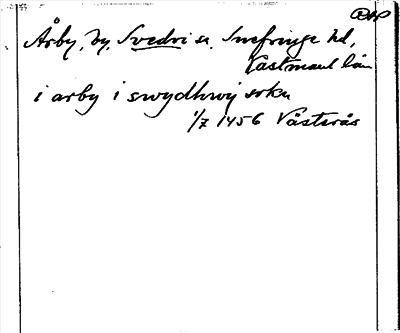 Årby, by, Svedvi sn, Snefringe hd,
Västmanl. län
i arby i swydhwj sokn
1/7 1456 Västerås